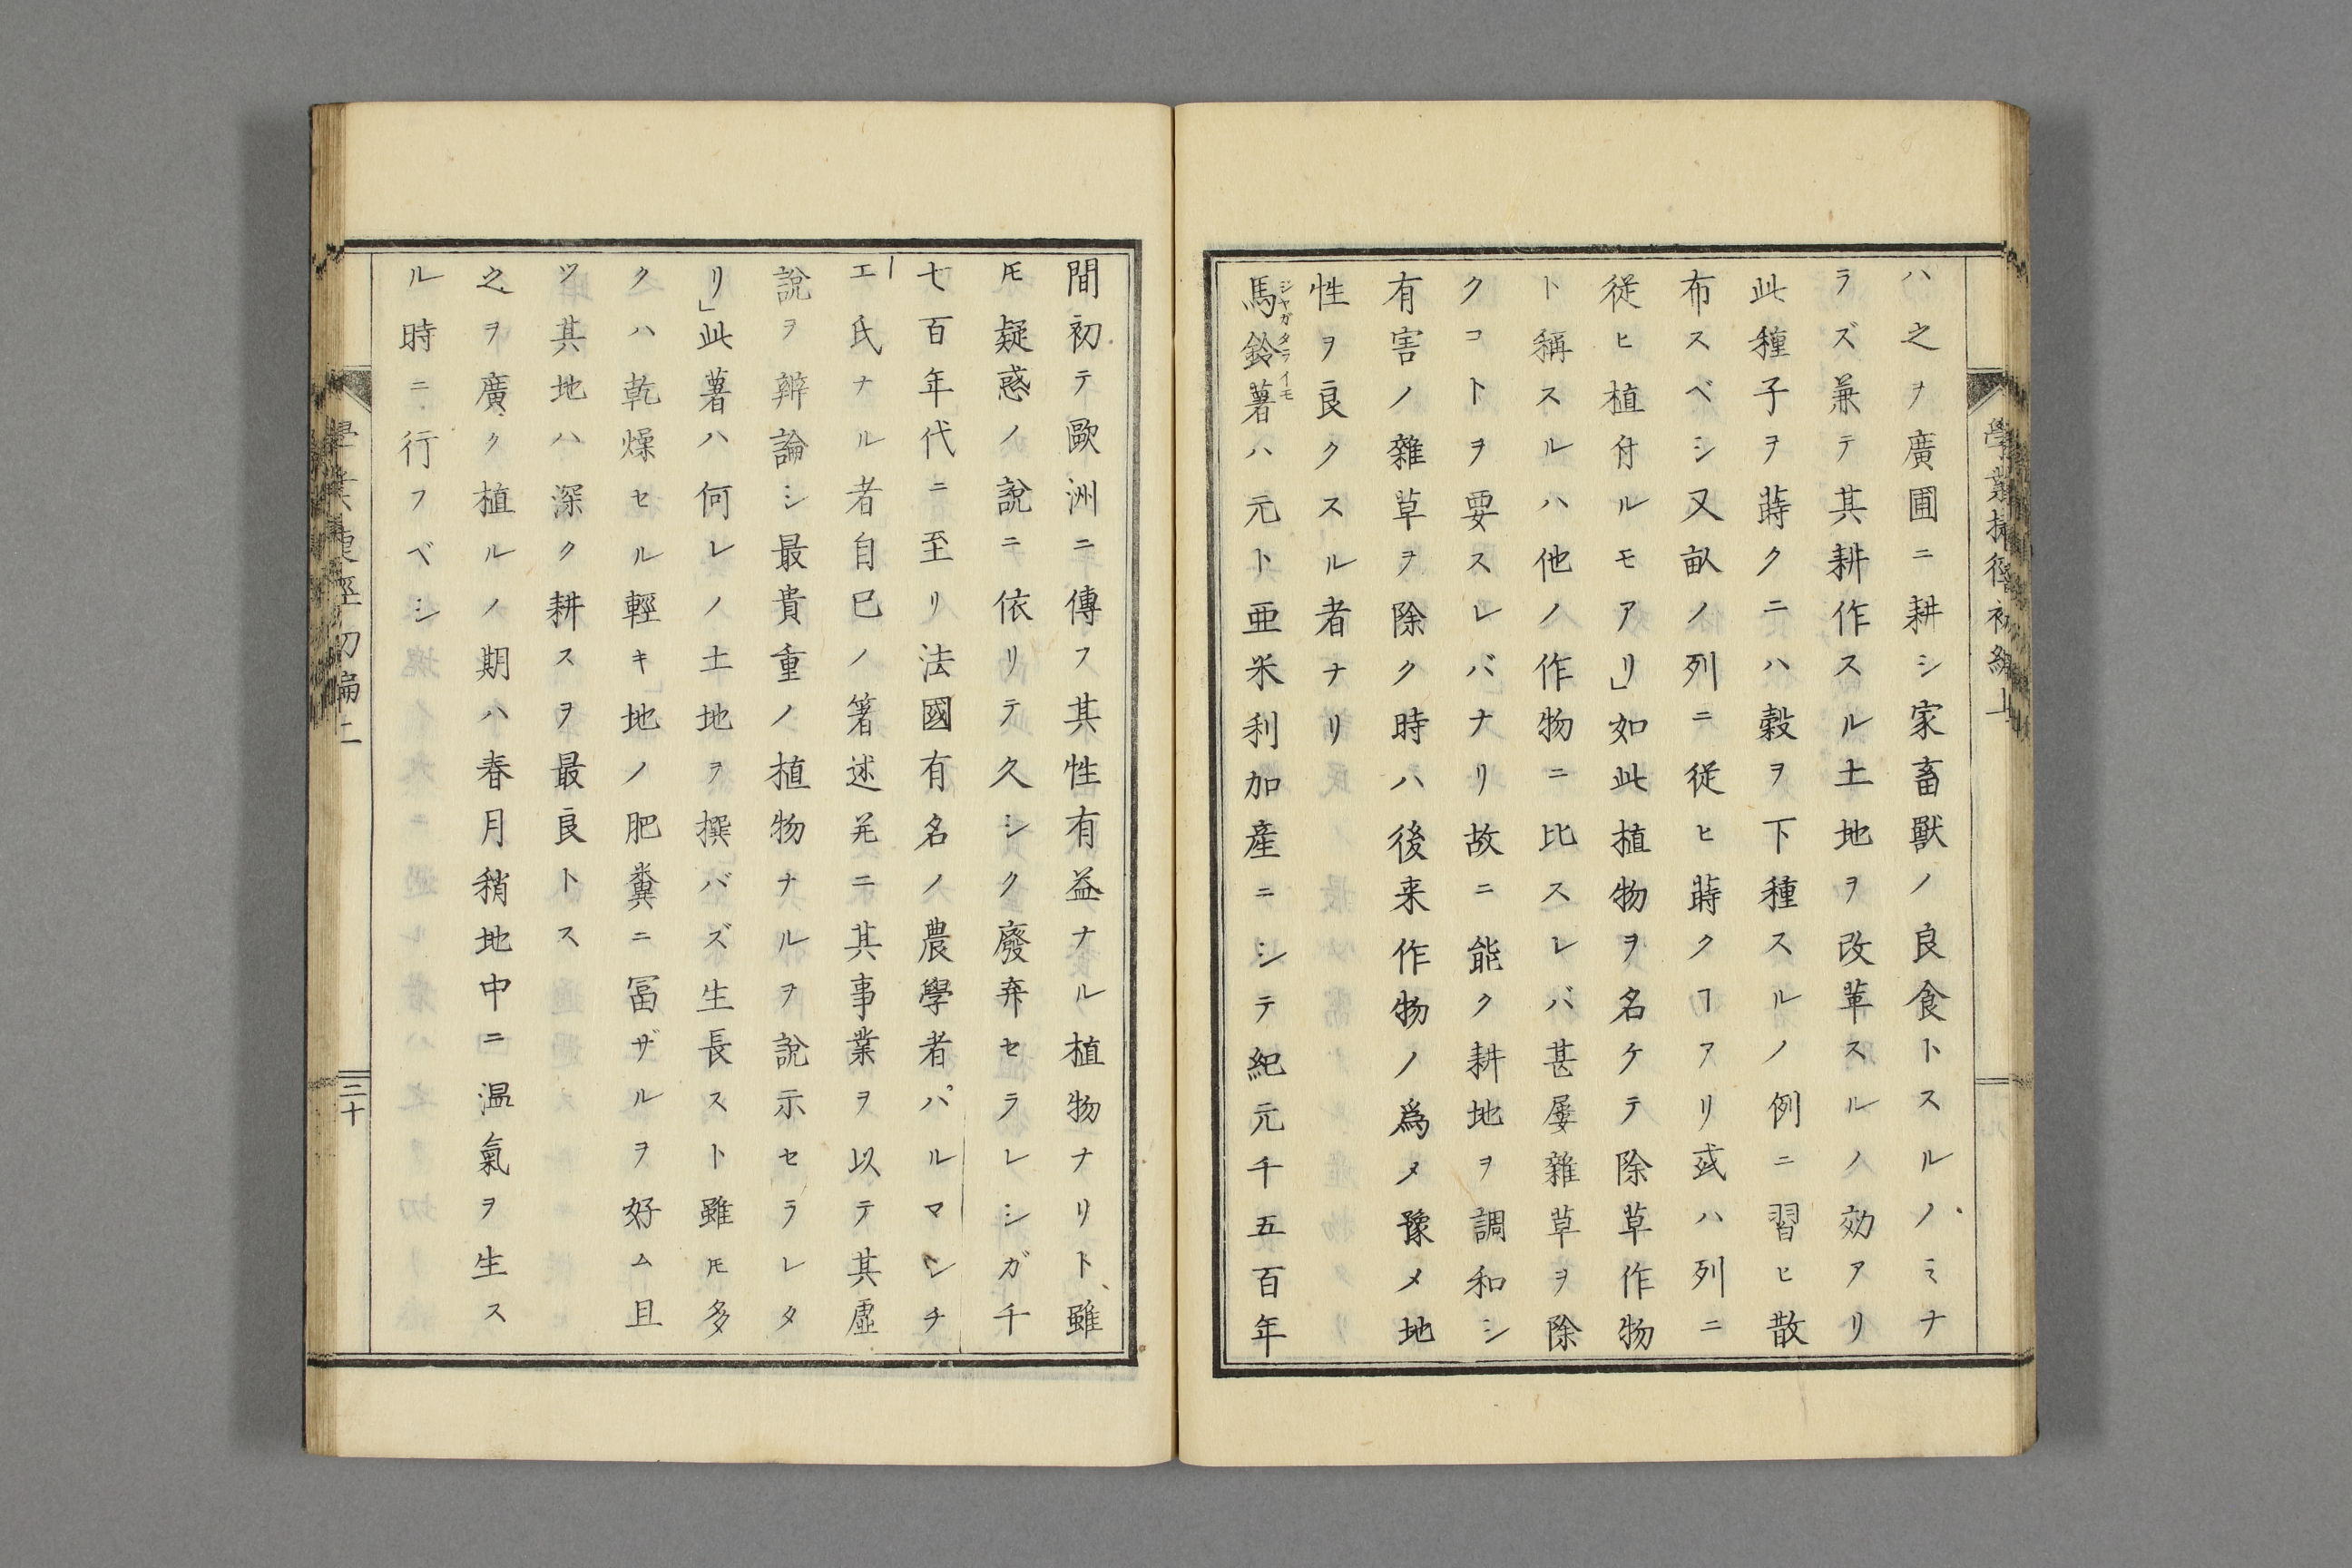 ハ之ヲ廣圃ニ耕シ家畜獸ノ良食トスルノミナ
ラズ兼テ其耕作スル土地ヲ改革スルノ効アリ
此種子ヲ蒔クニハ穀ヲ下種スルノ例ニ習ヒ散
布スベシ又畝ノ列ニ従ヒ蒔クヿアリ或ハ列ニ
従ヒ植付ルモアリ」如此植物ヲ名ケテ除草作物
ト稱スルハ他ノ作物ニ比スレバ甚屡雜草ヲ除
クコトヲ要スレバナリ故ニ能ク耕地ヲ調和シ
有害ノ雜草ヲ除ク時ハ後来作物ノ爲メ豫メ地
性ヲ良クスル者ナリ
馬鈴薯ハ元ト亜米利加産ニシテ紀元千五百年
ジヤガタライモ
間初テ歐洲ニ傳フ其性有益ナル植物ナリト雖
𪜈疑惑ノ說ニ依リテ久シク廢弃セラレシガ千
七百年代ニ至リ法國有名ノ農學者パルマンチ
エ氏ナル者自己ノ箸述并ニ其事業ヲ以テ其虛
說ヲ辨論シ最貴重ノ植物ナルヲ說示セラレタ
リ」此薯ハ何レノ土地ヲ撰バズ生長スト雖𪜈多
クハ乾燥セル輕キ地ノ肥糞ニ冨ザルヲ好ム且
ツ其地ハ深ク耕スヲ最良トス
之ヲ廣ク植ルノ期ハ春月稍地中ニ温氣ヲ生ス
ル時ニ行フベシ
二十